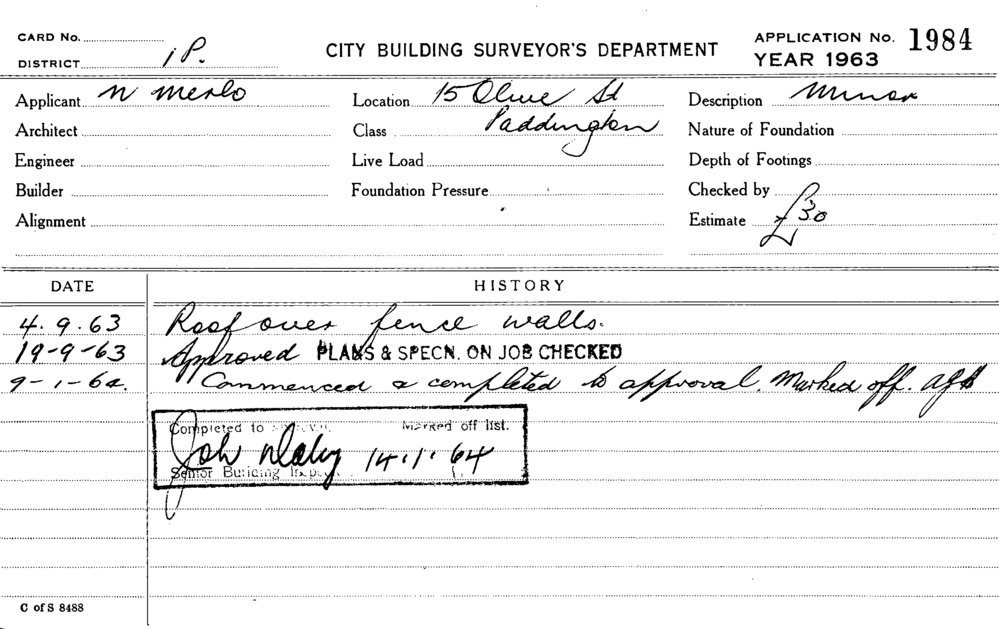 CARD No.
CITY BUILDING SURVEYOR'S DEPARTMENT
APPLICATION No. 1984
DISTRICT 1P.
YEAR 1963
Applicant N Merlo
Location 15 Olive St
Description Minor
Architect
Class Paddington
Nature of Foundation
Engineer
Live Load
Depth of Footings
Builder
Foundation Pressure
Checked by
Alignment
Estimate £30
DATE HISTORY
4.9.63 Roof over fence walls.
19-9-63 Approved PLANS & SPECN. ON JOB CHECKED
9-1-64. Commenced & completed to approval. Marked off.
Completed to approval. Marked off list.
John 14.1.64
Senior Building
C of S 8488